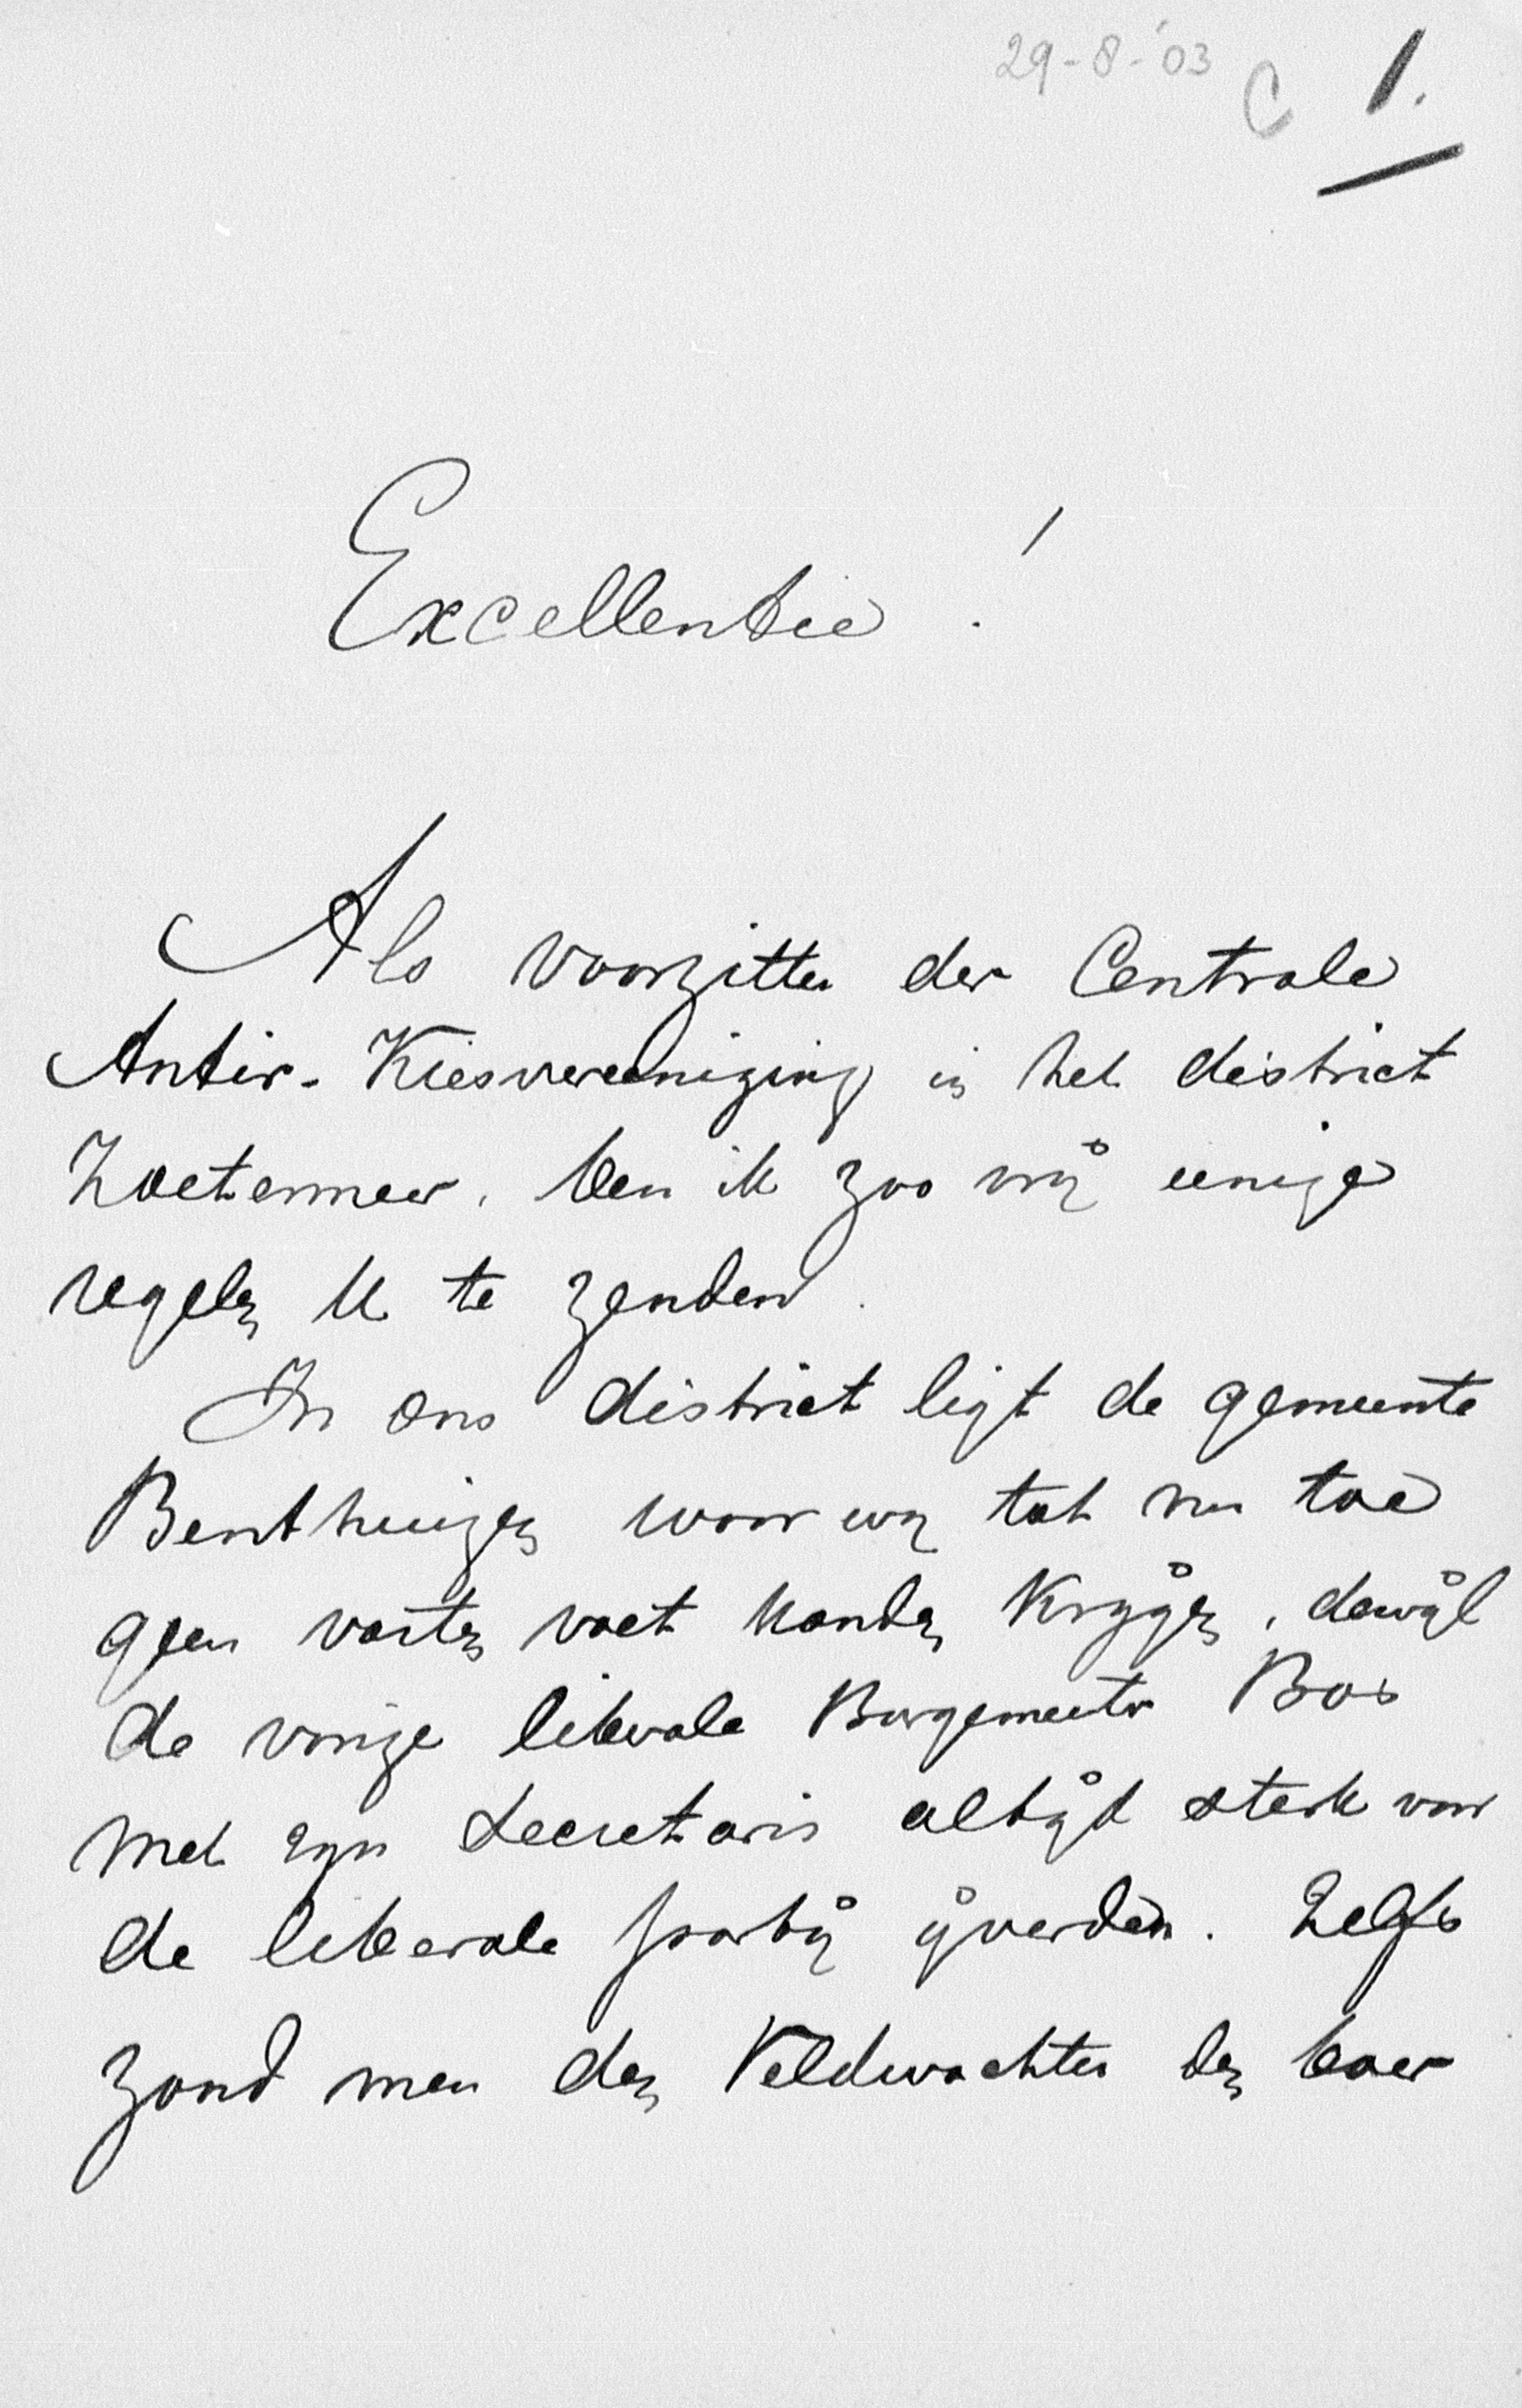 29-8-'03 C 1.
Excellentie!
Als voorzitter der Centrale
Antir. Kiesvereeniging in het district
Zoetermeer, ben ik zoo vrij eenige
regelen U te zenden.
In ons district ligt de gemeente
Benthuizen waar wij tot nu toe
geen vasten voet konden krijgen, dewijl
de vorige liberale Burgemeester Bos
met zijn Secretaris altijd sterk voor
de liberale partij ijverden. Zelfs
zond men den Veldwachter den boer